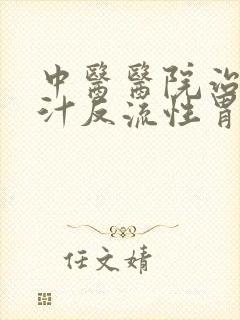 中醫醫院治
汁反流性胃
任文婧